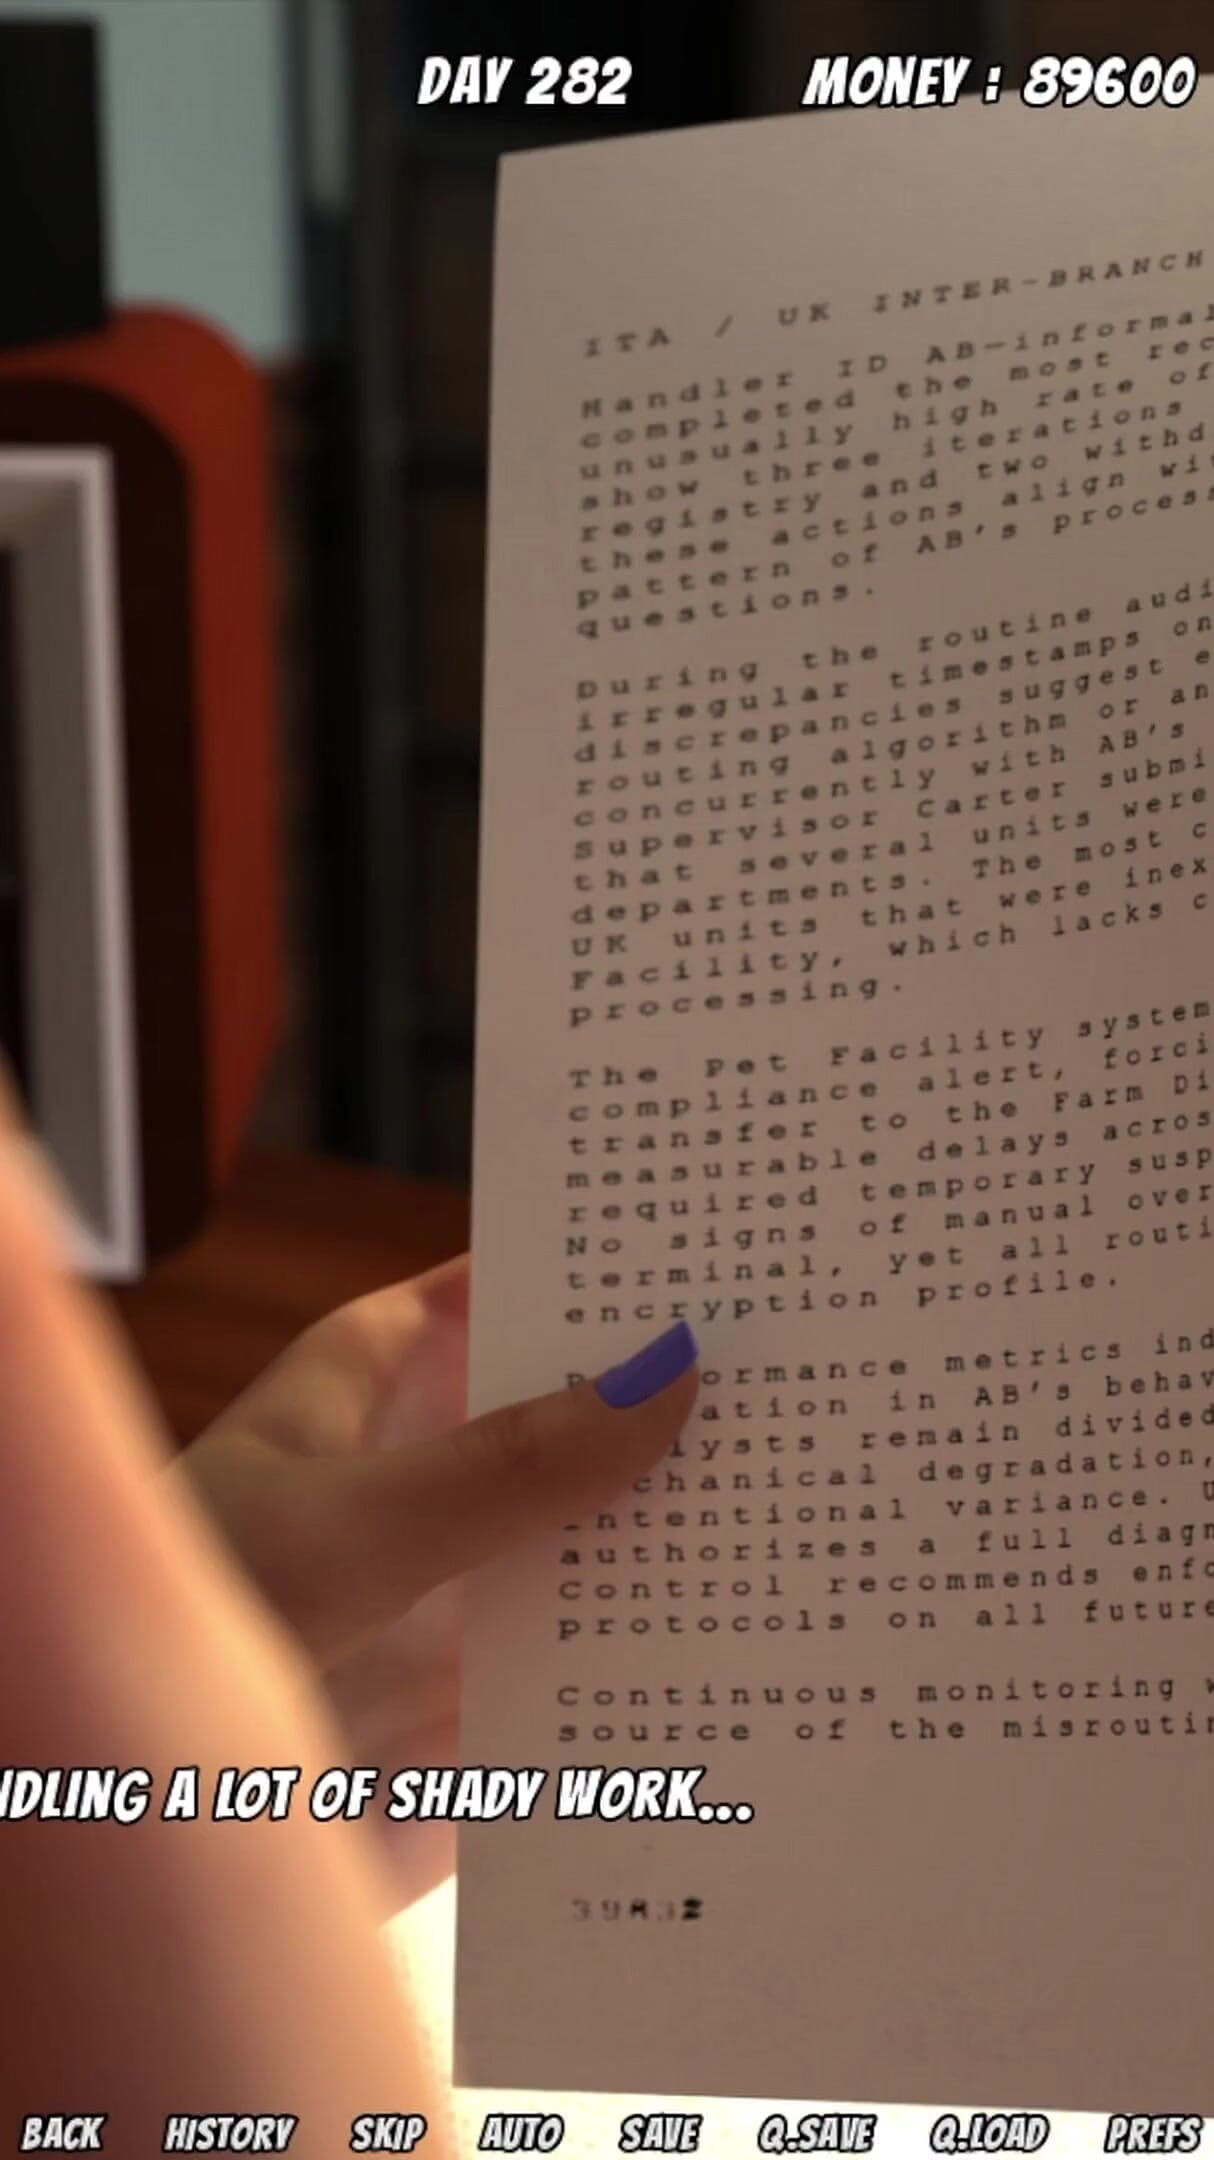 DAY 282 MONEY : 89600
ITA / UK INTER-BRANCH
Handler ID AB—informal
completed the most rec
unusually high rate of
show three iterations
registry and two withd
these actions align wi
pattern of AB's process
questions.
During the routine audi
irregular timestamps on
discrepancies suggest e
routing algorithm or an
concurrently with AB's
Supervisor Carter submi
that several units were
departments. The most c
UK units that were inex
Facility, which lacks c
processing.
The Pet Facility system
compliance alert, forci
transfer to the Farm Di
measurable delays acros
required temporary susp
No signs of manual over
terminal, yet all routi
encryption profile.
P ormance metrics ind
ation in AB's behav
lysts remain divided
chanical degradation,
intentional variance. U
authorizes a full diagn
Control recommends enfo
protocols on all future
Continuous monitoring w
source of the misroutin
NDLING A LOT OF SHADY WORK...
BACK HISTORY SKIP AUTO SAVE Q.SAVE Q.LOAD PREFS